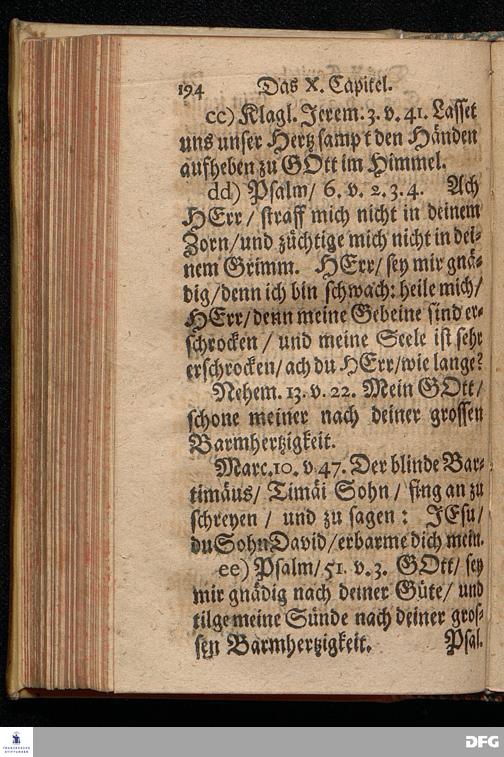 194 Das X. Capitel.
cc) Klagl. Jerem. 3. v. 41. Lasset
uns unser Hertz sampt den Händen
aufheben zu GOtt im Himmel.
dd) Psalm/ 6. v. 2. 3. 4. Ach
HErr/ straff mich nicht in deinem
Zorn/und züchtige mich nicht in dei-
nem Grimm. HErr/ sey mir gnä-
dig/denn ich bin schwach: heile mich/
HErr/denn meine Gebeine sind er-
schrocken/ und meine Seele ist sehr
erschrocken/ach du HErr/wie lange?
Nehem. 13. v. 22. Mein GOtt/
schone meiner nach deiner grossen
Barmhertzigkeit.
Marc. 10. v. 47. Der blinde Bar-
timäus/ Timäi Sohn/ fing an zu
schreyen/ und zu sagen: JEsu/
du Sohn David/erbarme dich mein.
ee) Psalm/ 51. v. 3. GOtt/ sey
mir gnädig nach deiner Güte/ und
tilge meine Sünde nach deiner gros-
sen Barmhertzigkeit. Psal.
FRANCKESCHE
STIFTUNGEN
DFG